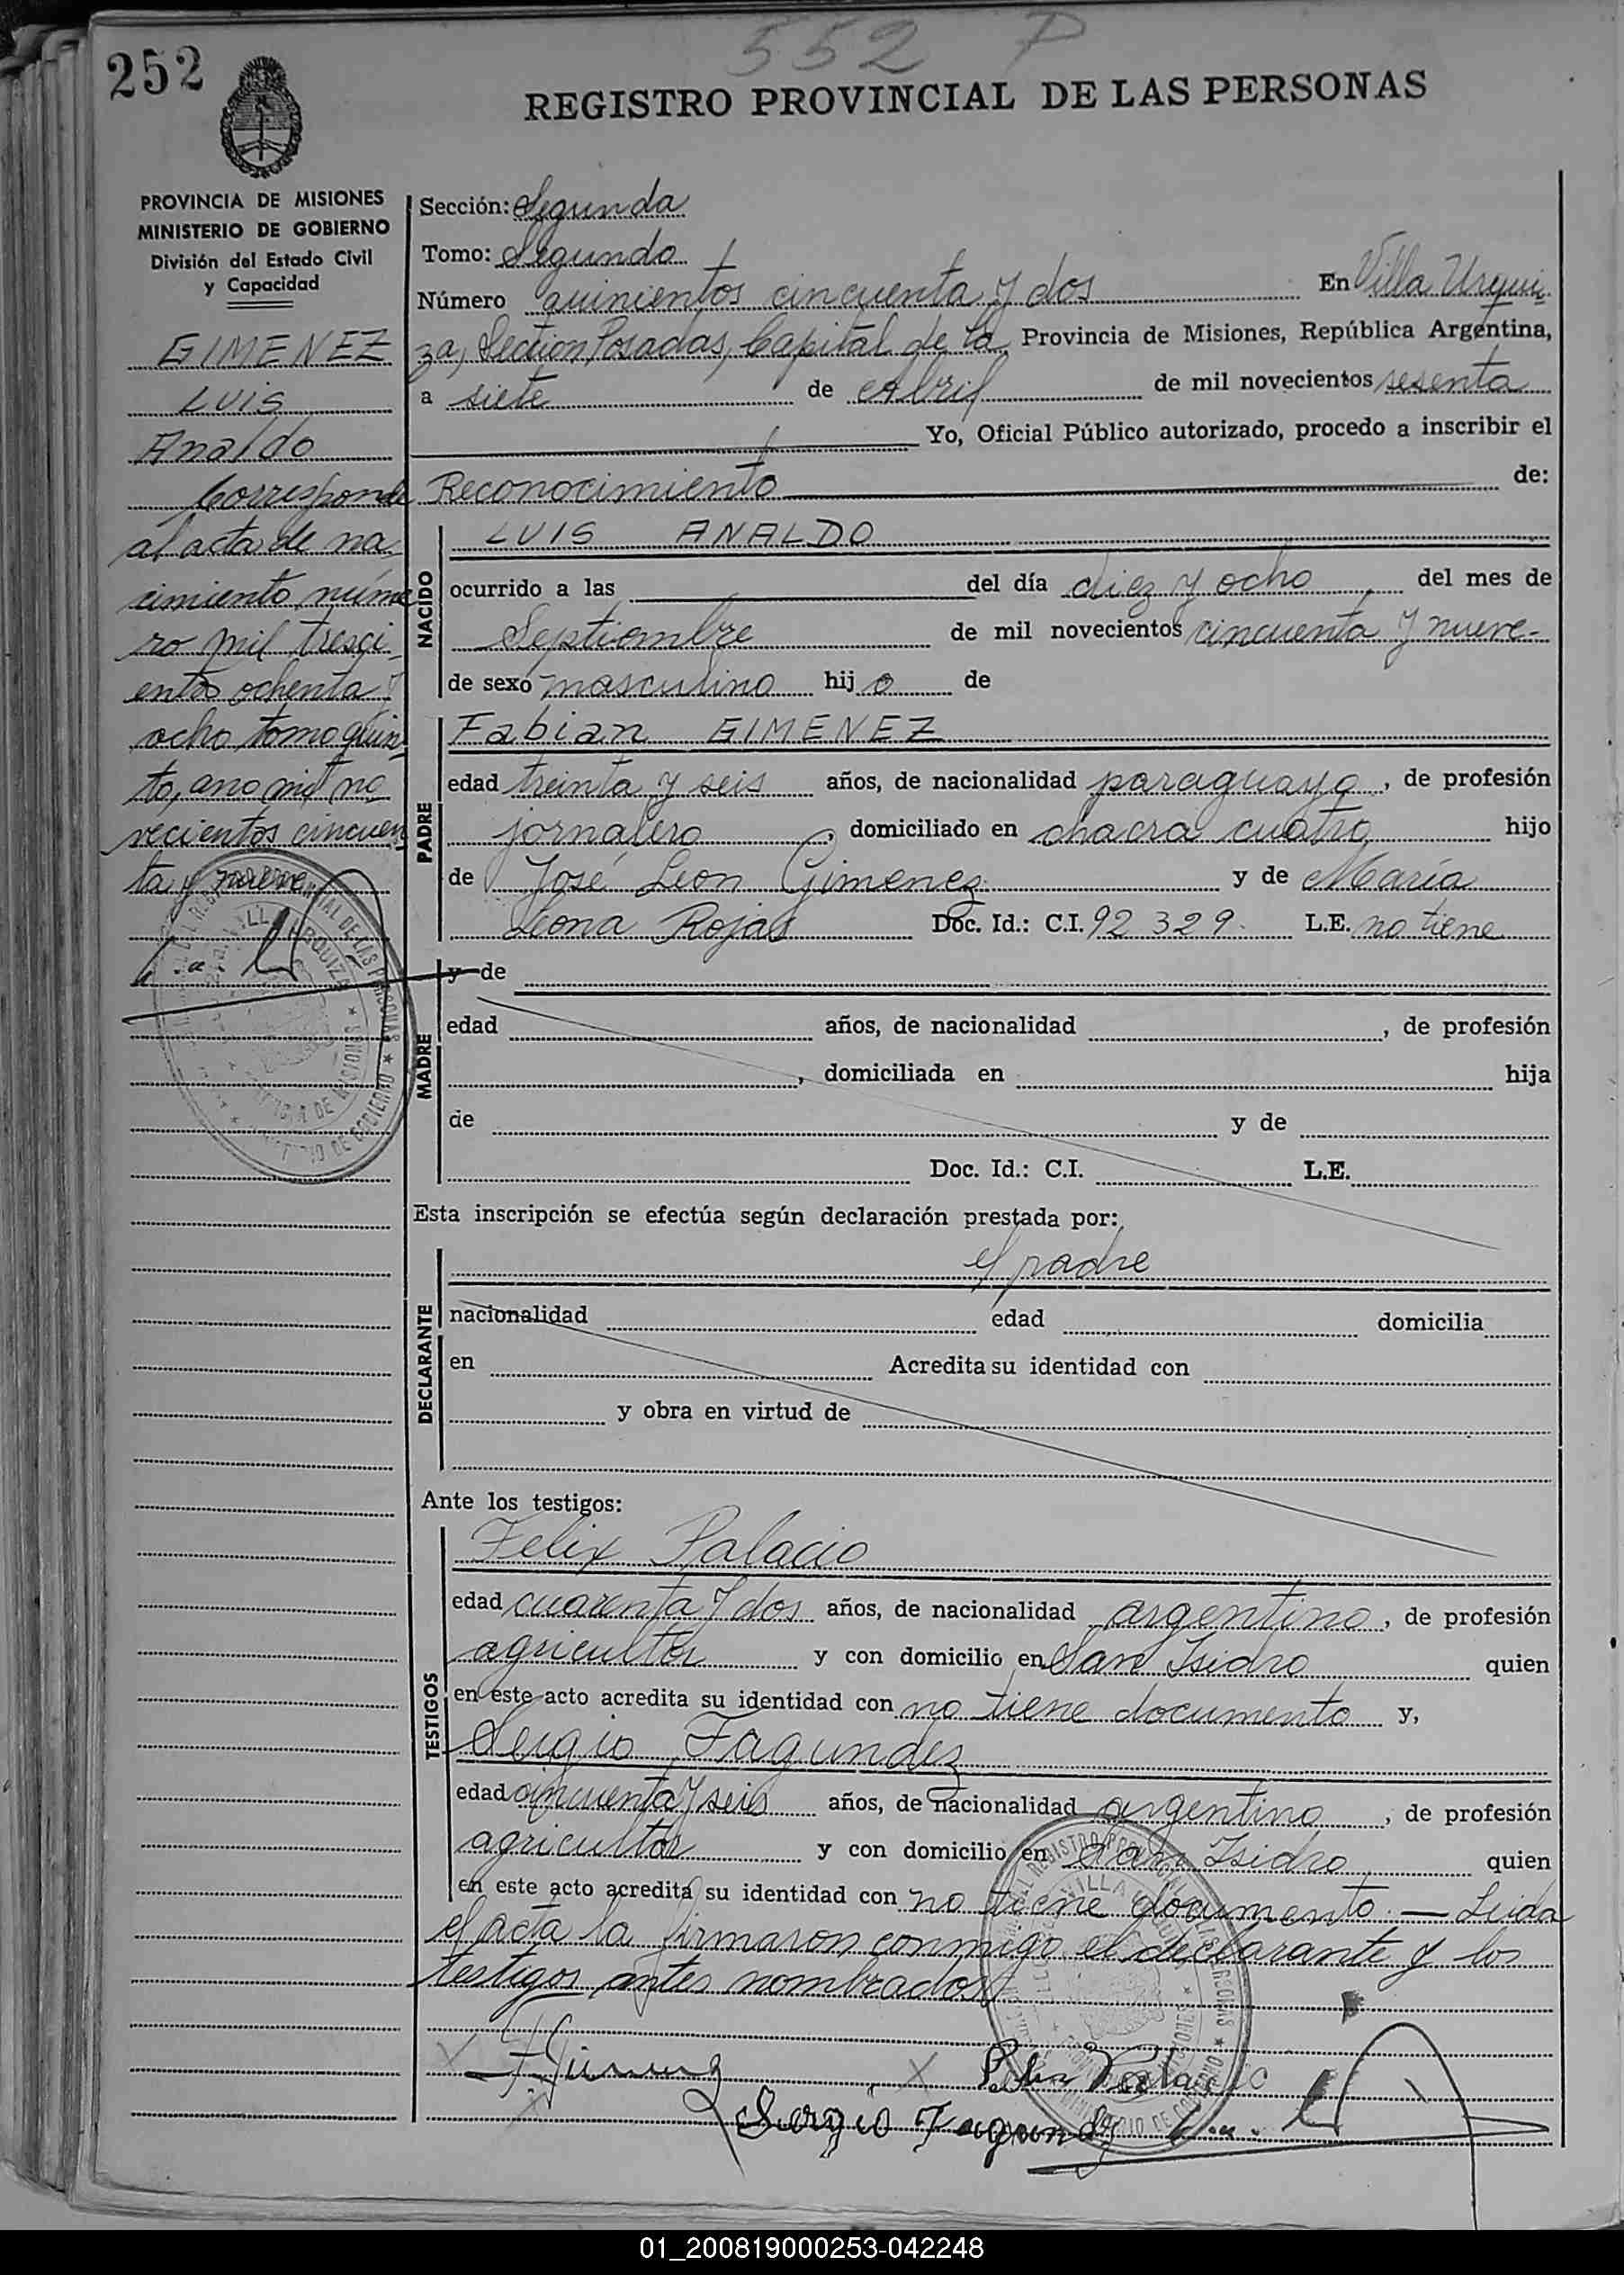 552 P
252
REGISTRO PROVINCIAL DE LAS PERSONAS
PROVINCIA DE MISIONES
MINISTERIO DE GOBIERNO
División del Estado Civil
y Capacidad
GIMENEZ
LUIS
Analdo
Corresponde
al acta de na
cimiento núme
ro mil tresci
entos ochenta y
ocho tomo quin
to, ano mil no
vecientos cincuen
ta y nueve
Sección: Segunda
Tomo: Segundo
Número quinientos cincuenta y dos En Villa Urqui
za, Sección Posadas, Capital de la Provincia de Misiones, República Argentina,
a siete de Abril de mil novecientos sesenta
Yo, Oficial Público autorizado, procedo a inscribir el
Reconocimiento de:
NACIDO
LUIS ANALDO
ocurrido a las del día diez y ocho del mes de
Septiembre de mil novecientos cincuenta y nueve-
de sexo masculino hijo de
PADRE
Fabian GIMENEZ
edad treinta y seis años, de nacionalidad paraguayo, de profesión
jornalero, domiciliado en chacra cuatro hijo
de José Leon Gimenez y de María
Leona Rojas Doc. Id.: C.I. 92329. L.E. no tiene
MADRE
y de
edad años, de nacionalidad , de profesión
, domiciliada en hija
de y de
Doc. Id.: C.I. L.E.
Esta inscripción se efectúa según declaración prestada por:
el padre
DECLARANTE
nacionalidad edad domicilia
en Acredita su identidad con
y obra en virtud de
Ante los testigos:
TESTIGOS
Felix Palacio
edad cuarenta y dos años, de nacionalidad argentino, de profesión
agricultor y con domicilio en San Isidro quien
en este acto acredita su identidad con no tiene documento y,
Sergio Fagundez
edad cincuenta y seis años, de nacionalidad argentino, de profesión
agricultor y con domicilio en San Isidro quien
en este acto acredita su identidad con no tiene documento. — Leida
el acta la firmaron conmigo el declarante y los
testigos antes nombrados
Felix Palacio
Sergio Fagundez
01_200819000253-042248